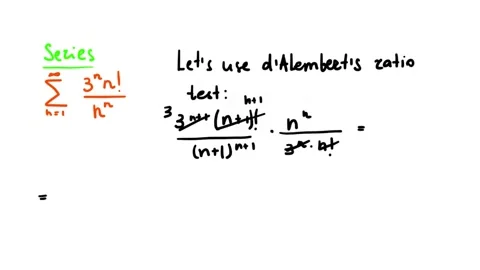 Series
∞ ∑ n=1 3ⁿn! / nⁿ
Let's use d'Alembert's ratio
test:
3 n+1
3ⁿ⁺¹(n+1)! / (n+1)ⁿ⁺¹ · nⁿ / 3ⁿ · n! =
=